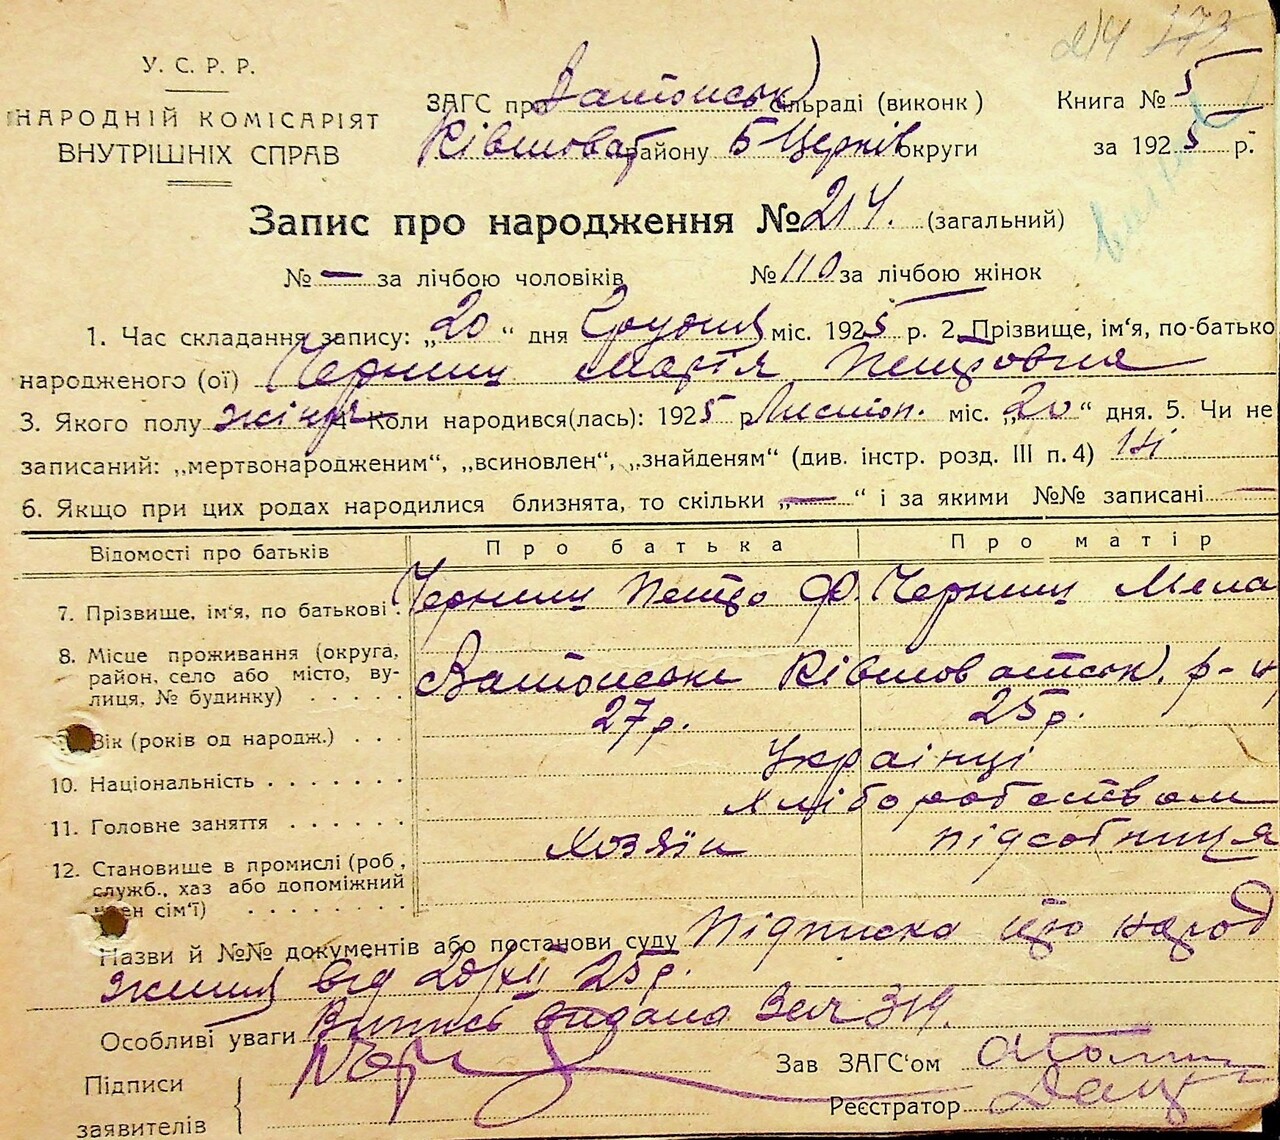 214 273
У. С. Р. Р.
НАРОДНІЙ КОМІСАРІЯТ
ВНУТРІШНІХ СПРАВ
ЗАГС при сільраді (виконк)
Ківшоват району Б-Церків округи
Книга № 5
за 1925 р.
Запис про народження № 214. (загальний)
№ — за лічбою чоловіків № 110 за лічбою жінок
1. Час складання запису: „20“ дня Грудня міс. 1925 р. 2. Прізвище, ім‘я, по-батько
народженого (ої) Черниш Марія Петровна
3. Якого полу жіноч 4 Коли народився(лась): 1925 р Листоп. міс. „20“ дня. 5. Чи не
записаний: „мертвонародженим“, „всиновлен“, „знайденям“ (див. інстр. розд. III п. 4) Ні
6. Якщо при цих родах народилися близнята, то скільки „—“ і за якими №№ записані —
Відомості про батьків Про батька Про матір
7. Прізвище, ім‘я, по батькові. Черниш Петро Ф. Черниш Мела
8. Місце проживання (округа,
район, село або місто, ву-
лиця, № будинку) . . . . Ківшоватськ). р-н
9. Вік (років од народж.) . . . 27 р. 25 р.
10. Національність . . . . . . . Українці
11. Головне заняття . . . . . . Хліборобством
12. Становище в промислі (роб,
служб., хаз або допоміжний
член сім‘ї) . . . . . . . . Хозяїн підсобниця
Назви й №№ документів або постанови суду Підписка про народ
ження від 20/XII 25 р.
Особливі уваги Випись видана 319.
Підписи
заявителів
Зав ЗАГС‘ом
Реєстратор